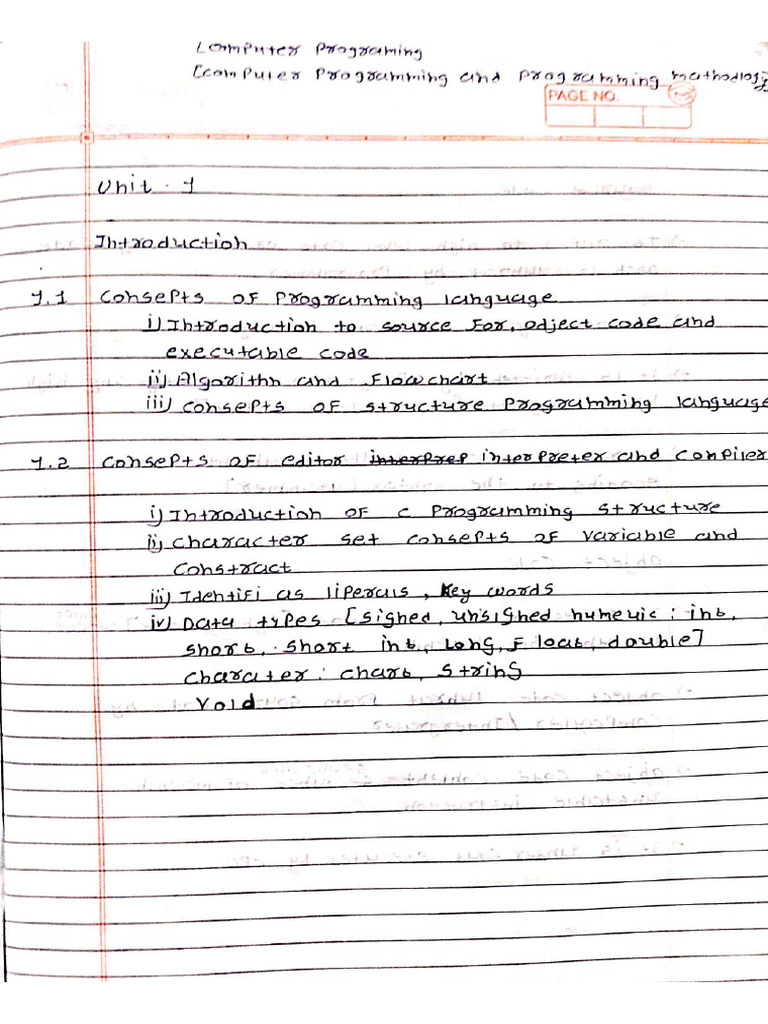 Computer Programing
[computer programming and programming mathodlogy
PAGE NO.
Unit - 1
Introduction
1.1 Consepts of Programming language
i) Introduction to source for, odject code and
executable code
ii) Algorithn and flowchart
iii) consepts of structure programming language
1.2 Consepts of editor interprep interpreter and compiler
i) Introduction of c programming structure
ii) character set consepts of variable and
constract
iii) Identifi as liperals, key words
iv) Data types [signed, unsigned numeric: int,
short, short int, long, float, double]
charater: chart, string
void